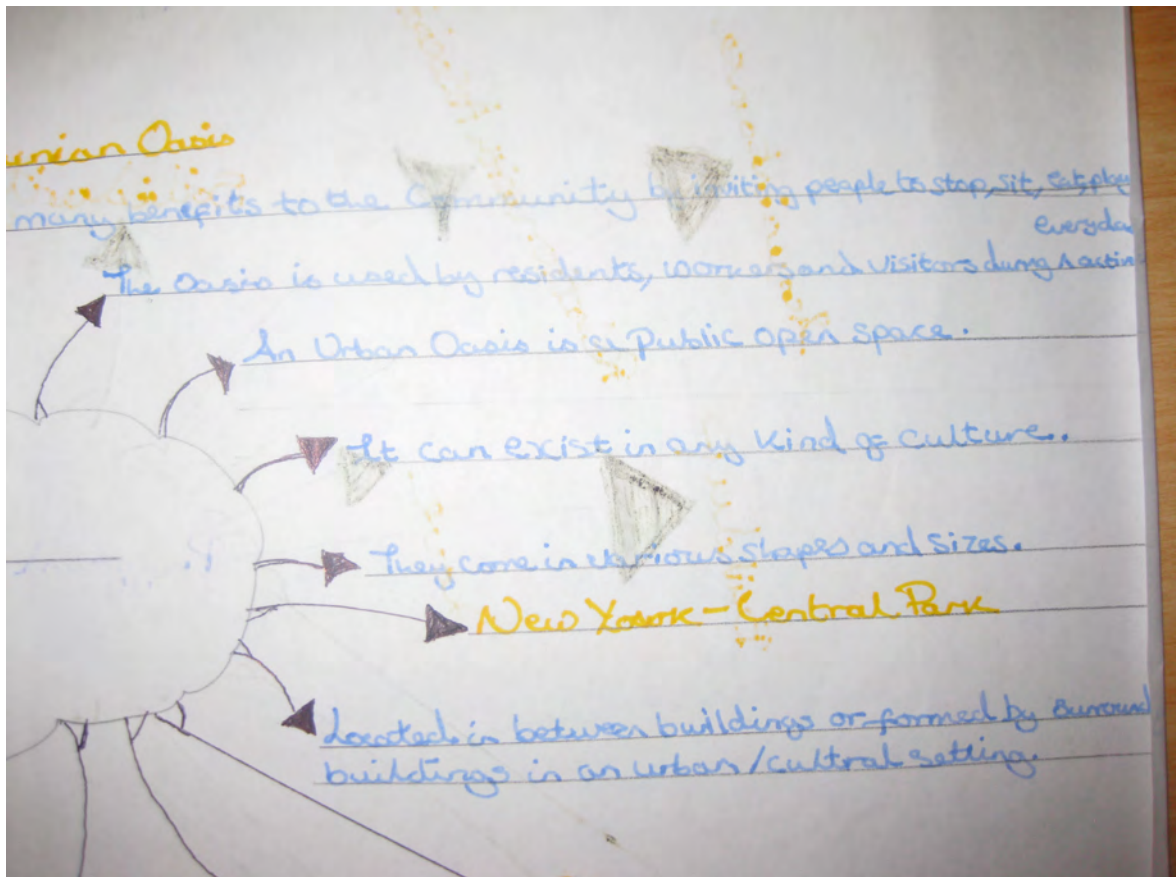 Oasis
many benefits to the Community by inviting people to stop, sit, eat, play
everyday
The Oasis is used by residents, workers and visitors during
An Urban Oasis is a Public open space.
It can exist in any kind of culture.
They come in various shapes and sizes.
New Yourk - Central Park
Located in between buildings or formed by surround
buildings in an urban/cultral setting.